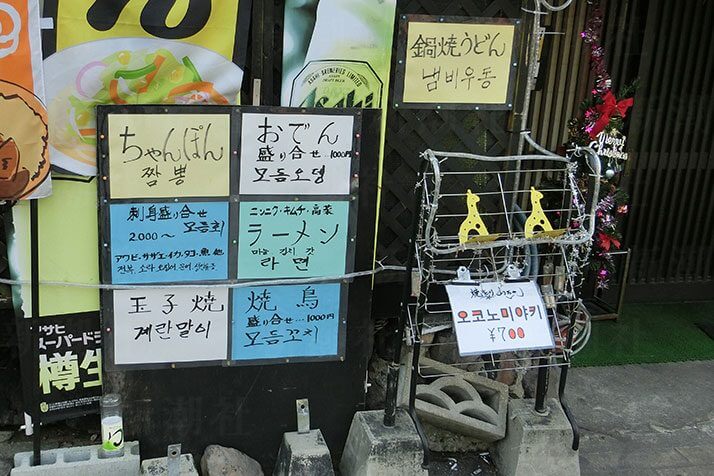 鍋焼うどん
냄비우동
ちゃんぽん
짬뽕
おでん
盛り合せ…1000円
모듬오뎅
刺身盛り合せ
모듬회
2.000〜
アワビ・サザエ・イカ・タコ・魚他
ニンニク・キムチ・高菜
ラーメン
마늘 김치 갓
라면
玉子焼
계란말이
焼鳥
盛り合せ…1000円
모듬꼬치
오코노미야키
¥700
Merry
Christmas
ASAHI BREWERIES LIMITED
アサヒ
スーパードライ
樽生